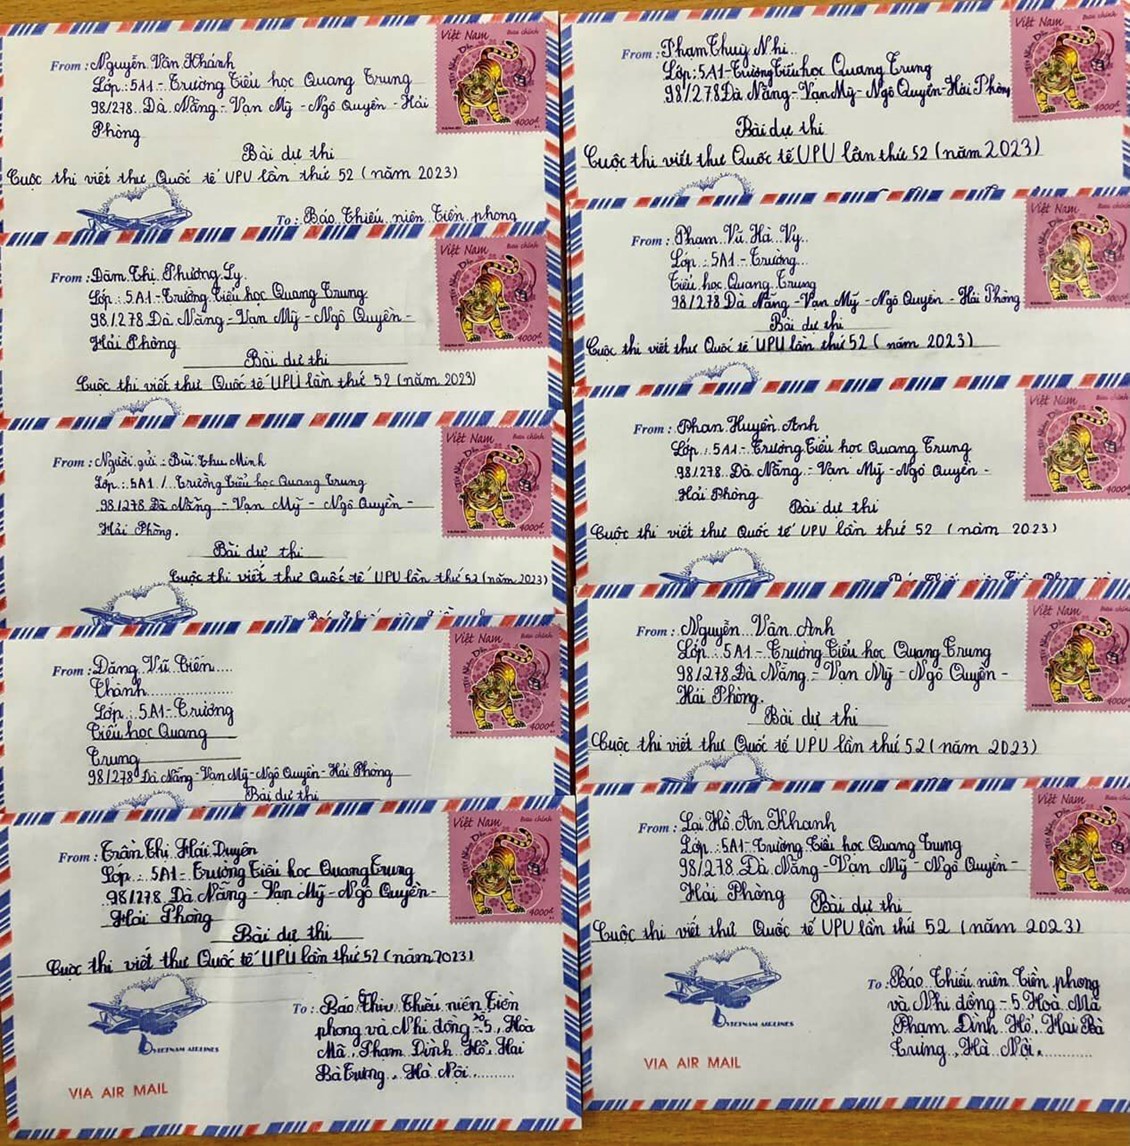 From : Nguyễn Vân Khánh
Lớp : 5A1 - Trường Tiểu học Quang Trung
98/278 Đà Nẵng - Vạn Mỹ - Ngô Quyền - Hải
Phòng
Bài dự thi
Cuộc thi viết thư Quốc tế UPU lần thứ 52 (năm 2023)
To : Báo Thiếu niên Tiền phong
Việt Nam Bưu chính
4000đ
From : Đàm Thị Phương Ly
Lớp : 5A1 - Trường Tiểu học Quang Trung
98/278 Đà Nẵng - Vạn Mỹ - Ngô Quyền -
Hải Phòng
Bài dự thi
Cuộc thi viết thư Quốc tế UPU lần thứ 52 (năm 2023)
Việt Nam Bưu chính
4000đ
From : Người gửi : Bùi Thu Minh
Lớp : 5A1 / Trường Tiểu học Quang Trung
98/278 Đà Nẵng - Vạn Mỹ - Ngô Quyền -
Hải Phòng.
Bài dự thi
Cuộc thi viết thư Quốc tế UPU lần thứ 52 (năm 2023)
Việt Nam Bưu chính
4000đ
From : Đặng Vũ Tiến
Thành
Lớp : 5A1 - Trường
Tiểu học Quang
Trung
98/278 Đà Nẵng - Vạn Mỹ - Ngô Quyền - Hải Phòng
Bài dự thi
Việt Nam Bưu chính
4000đ
From : Trần Thị Hải Duyên
Lớp : 5A1 - Trường Tiểu học Quang Trung
98/278 Đà Nẵng - Vạn Mỹ - Ngô Quyền -
Hải Phòng
Bài dự thi
Cuộc thi viết thư Quốc tế UPU lần thứ 52 (năm 2023)
Việt Nam Bưu chính
4000đ
To : Báo Thiếu niên Tiền
phong và Nhi đồng - số 5, Hòa
Mã, Phạm Đình Hổ, Hai
Bà Trưng, Hà Nội
VIETNAM AIRLINES
VIA AIR MAIL
From : Phạm Thuỳ Nhi
Lớp : 5A1 - Trường Tiểu học Quang Trung
98/278 Đà Nẵng - Vạn Mỹ - Ngô Quyền - Hải Phòng
Bài dự thi
Cuộc thi viết thư Quốc tế UPU lần thứ 52 (năm 2023)
Việt Nam Bưu chính
4000đ
From : Phạm Vũ Hà Vy
Lớp : 5A1 - Trường
Tiểu học Quang Trung
98/278 Đà Nẵng - Vạn Mỹ - Ngô Quyền - Hải Phòng
Bài dự thi
Cuộc thi viết thư Quốc tế UPU lần thứ 52 (năm 2023)
Việt Nam Bưu chính
4000
From : Phan Huyền Anh
Lớp : 5A1 - Trường Tiểu học Quang Trung
98/278 Đà Nẵng - Vạn Mỹ - Ngô Quyền -
Hải Phòng
Bài dự thi
Cuộc thi viết thư Quốc tế UPU lần thứ 52 (năm 2023)
Việt Nam Bưu chính
4000
From : Nguyễn Vân Anh
Lớp : 5A1 - Trường Tiểu học Quang Trung
98/278 Đà Nẵng - Vạn Mỹ - Ngô Quyền -
Hải Phòng.
Bài dự thi
Cuộc thi viết thư Quốc tế UPU lần thứ 52 (năm 2023)
Việt Nam Bưu chính
4000
From : Lại Hồ An Khanh
Lớp : 5A1 - Trường Tiểu học Quang Trung
98/278 Đà Nẵng - Vạn Mỹ - Ngô Quyền -
Hải Phòng
Bài dự thi
Cuộc thi viết thư Quốc tế UPU lần thứ 52 (năm 2023)
Việt Nam Bưu chính
4000
To : Báo Thiếu niên Tiền phong
và Nhi đồng - 5 Hoà Mã
Phạm Đình Hổ, Hai Bà
Trưng, Hà Nội.
VIETNAM AIRLINES
VIA AIR MAIL